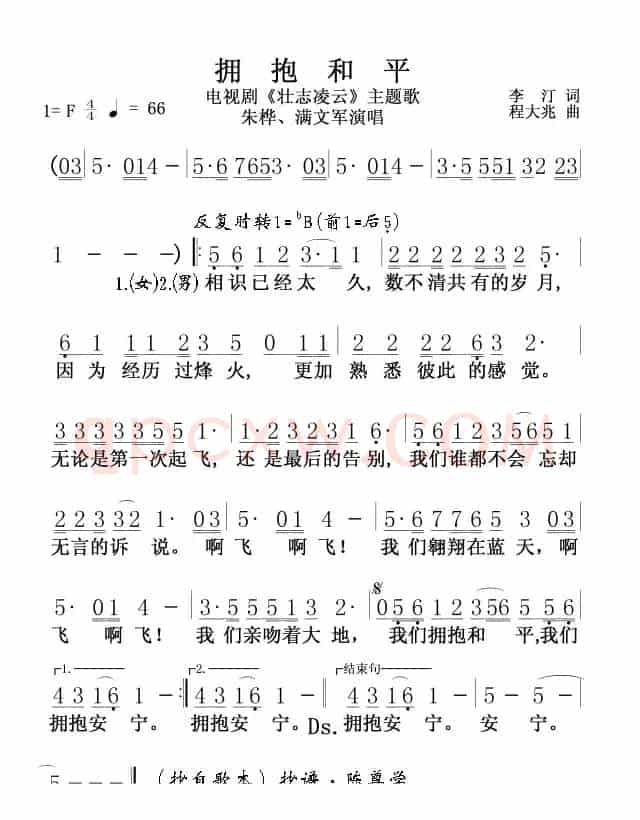 拥 抱 和 平
电视剧《壮志凌云》主题歌
李 汀 词
1= F 4/4 ♩ = 66
朱桦、满文军演唱
程大兆 曲
(03 | 5· 014 − | 5·6 7653·03 | 5· 014 − | 3·5 551 32 23 |
反复时转1=ᵇB(前1=后5)
1 − − −) ‖: 5 6 1 2 3·1 1 | 2 2 2 2 2 2 3 2 5· |
1.(女)2.(男)相识已经太 久, 数不清共有的岁月,
6 1 11 2 3 5 0 11 | 2· 2 2 2 6 3 2· |
因为经历 过烽火, 更加 熟悉彼此的感觉。
3 3 3 3 3 5 5 1· | 1·2 3 2 3 1 6· | 6·1 6 1 2 3 5 6 51 |
无论是第一次起飞, 还 是最后的告别, 我们谁都不会 忘却
2 2 3 3 32 1· 03 | 5· 01 4 − | 5·6 7 7 6 5 3 03 |
无言的诉 说。啊飞 啊飞! 我 们翱翔在蓝 天, 啊
5· 01 4 − | 3·5 5 5 1 3 2· | 𝄋 0 5 6 1 2 3 56 5 5 6 |
飞 啊飞! 我 们亲吻着大 地, 我们拥抱和 平,我们
1. 2. 结束句
4 3 16 1 − :‖ 4 3 16 1 − ‖ 4 3 16 1 − | 5 − 5 − |
拥抱安 宁。 拥抱安 宁。Ds.拥抱安 宁。 安 宁。
5 − − − ‖ (抄自歌本) 抄谱·陈尊学
qpcxw.COM